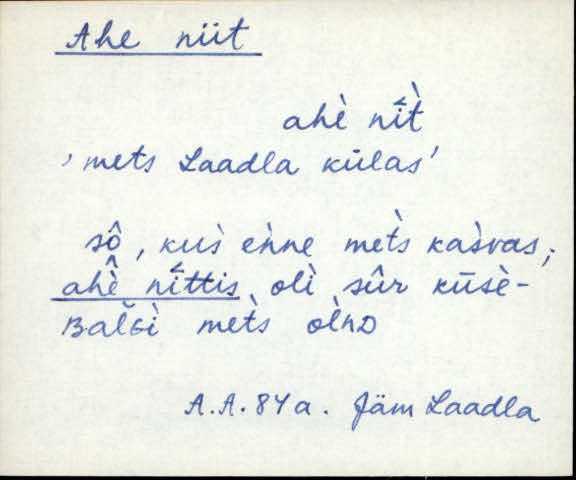 Ahe niit
ahè nît̀
'mets Laadla külas'
sô, kus̀ eǹne met̀s kas̀vas;
ahè̂ nîttis olì sûr kūsè-
ʙalɢ̆ì met̀s olǹᴅ
A.A. 84 a. Jäm Laadla